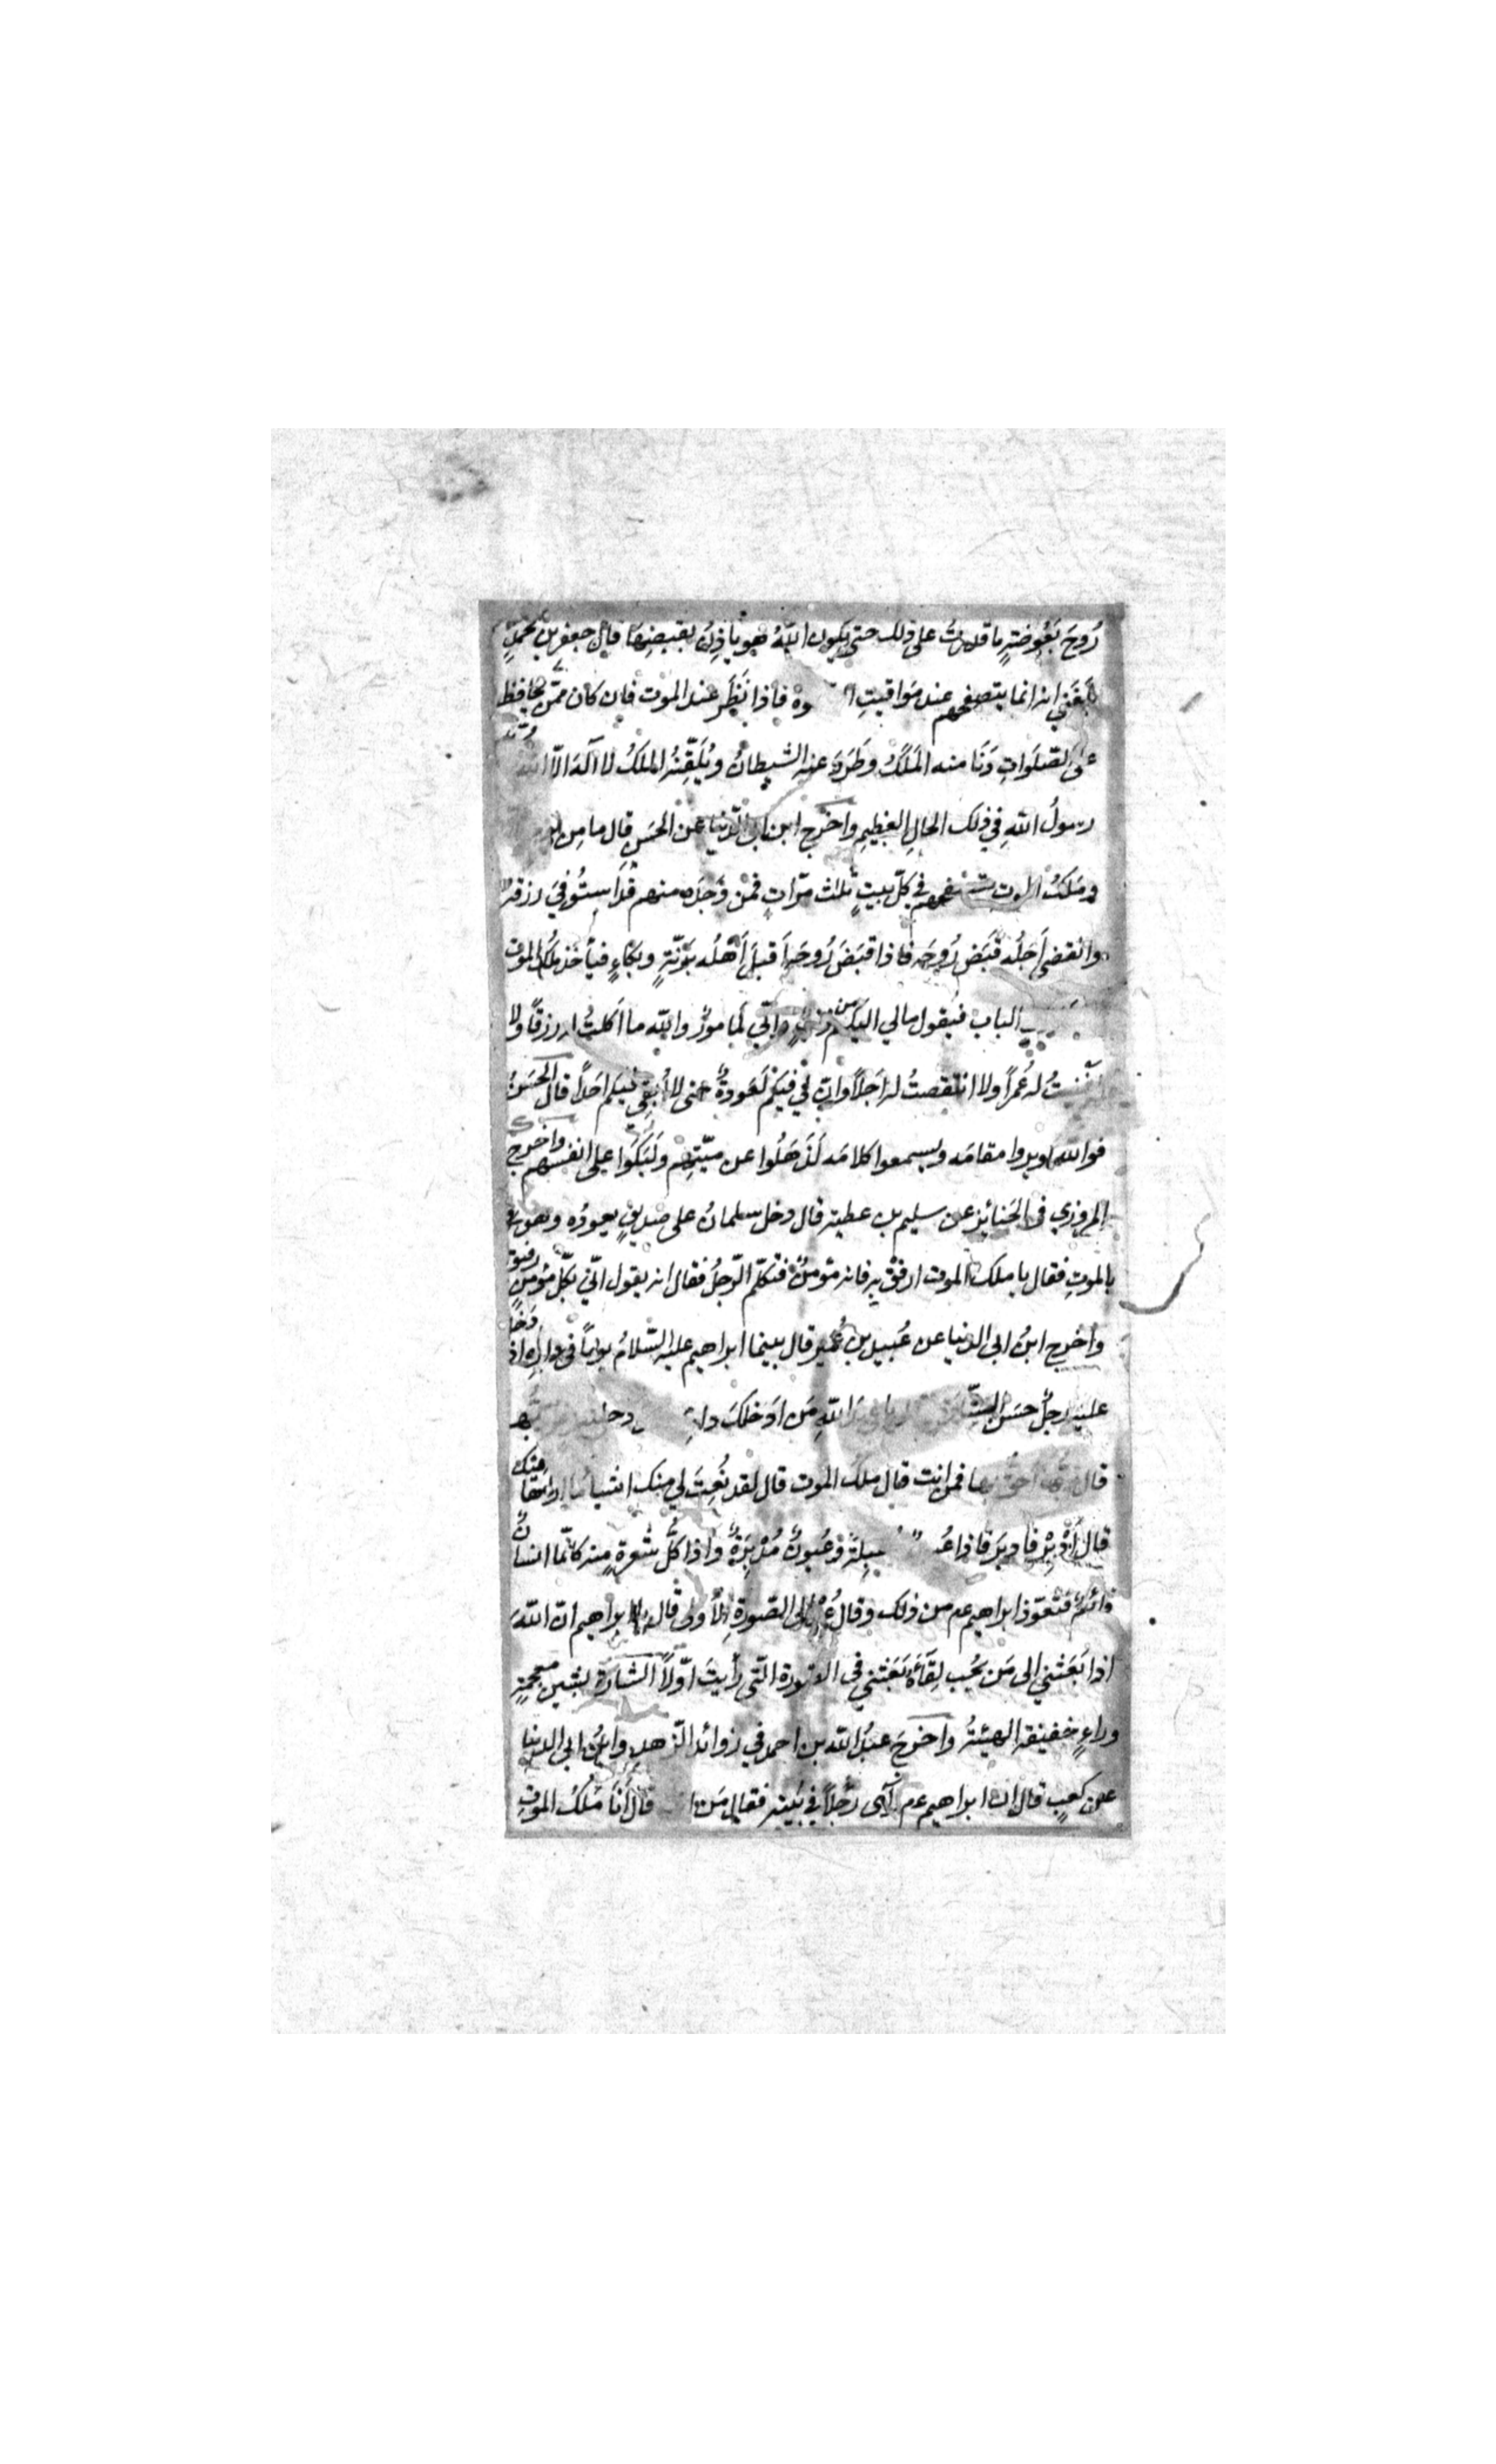 رُوحَ بَعُوضَةٍ ما قدرتُ على ذلك حتى يكون اللهُ هو ياذِنُ بقبضِها قال جعفر بن محمّدٍ
بَلَغَني انه انما يتصفحهم عند مَوَاقيتِ وة فاذا نَظَر عند الموت فان كان ممّن يحافظ
على الصلَواتِ دَنَا منه المَلَكُ وطَرَدَ عنه الشيطانُ ويُلَقِّنُهُ الملكُ لا اله الّا
رسولُ اللهِ في ذلك الحالِ العظيمِ واخرج ابن ابى الدّنيا عن الحَسَنِ قال ما مِن
ومَلَكُ الموت في كلّ بيتٍ ثلاث مرّاتٍ فمن وَجَدَه منهم قَد استُوفيَ رزقَه
وانقضى اَجَلُه قَبَض رُوحَه فاذا قبَضَ رُوحَه اَقبلَ اَهْلُه برَنّةٍ وبُكاءٍ فيأخذ مَلَكُ الموت
الباب فيقول مالي اليكم من واِنّي لَمامورٌ والله ما اَكلتُ له رزقًا ولا
له عُمرًا ولا انتقصتُ له اَجَلًا وانّ لي فيكم لَعَودةً حتى لا اُبقِي فيكم احَدًا قال الحسَنُ
فوالله لو يروا مقامَه ويسمعوا كلامَه لَذَهَلُوا عن ميّتِهم ولَبَكَوا على انفسهم واخرج
المروزي فى الجَنائِز عن سليم بن عطية قال دخل سلمانُ على صديقٍ يعودُه وهو
بالموتِ فقال يا ملك الموت ارفُقْ به فانه مؤمنٌ فتكلّم الرّجلُ فقال انه يقول انّي بكلّ مؤمنٍ رفيق
واَخرج ابنُ ابى الدنيا عن عُبيد بن عُمَير قال بينما ابراهيم عليه السّلامُ يومًا فى دارِه اذ دَخَل
عليه رجلٌ حسَنُ اللهِ مَن اَدخَلكَ
قال بها فمن انت قال ملك الموت قال لقد نُعِتَ لي منك اشياءُ ما اراها منك
قال اَدْبِرْ فادبَرَ فاذا عُيونٌ مُقبِلةٌ وعُيونٌ مُدْبِرَةٌ واذا كلُّ شعرةٍ منه كانّما انسانٌ
قائمٌ فتعوّذ ابراهيم عم من ذلك وقال عُدْ الى الصّورةِ الأُولى قال يا ابراهيم ان اللهَ
اذا بَعَثني الى مَن يُحِب لِقَآءَه بَعَثني في الصّورة الّتى رأيتَ اوّلًا الشّارَة بشين معجمة
وراءٍ خفيفة الهيئةُ واخرجَ عبدُ الله بن احمد في زوائد الزّهدِ وابنُ ابى الدنيا
عن كعبٍ قال ان ابراهيم عم رآى رَجُلًا في بَيته فقال مَن قال اَنَا مَلَكُ الموتِ